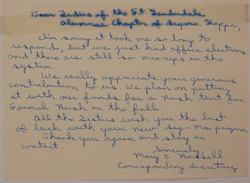 Dear Ladies of the Ft Lauderdale
Alumnae Chapter of Sigma Kappa,
I'm sorry it took me so long to
respond, but we just had office elections
and there are still so mix ups in the
system
We really appreciate your generous
contribution to us. We plan on putting
it with our funds for a Rush tent for
Formal Rush in the fall
All the Sisters wish you the best
of luck with your new sig- ma program
Thank you again and stay in
contact.
Sincerely,
Mary E. Russell
Corresponding Secretary